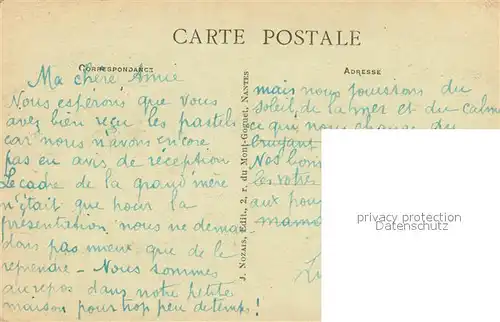 CARTE POSTALE
CORRESPONDANCE
Ma chère Annie
Nous espérons que vous
avez bien reçu les pastels
car nous n'avons encore
pas eu avis de réception
Le cadre de la grand'mère
n'était que pour la
présentation, nous ne deman
dons pas mieux que de le
reprendre - Nous sommes
au repos dans notre petite
maison pour trop peu de temps!
J. NOZAIS, Edit., 2, r. du Mont-Goguet, NANTES
ADRESSE
mais nous jouissons du
soleil, de la mer et du calme
ce qui nous change du
bruyant
Nos bons
les vôtres
aux pou
mama
privacy protection
Datenschutz